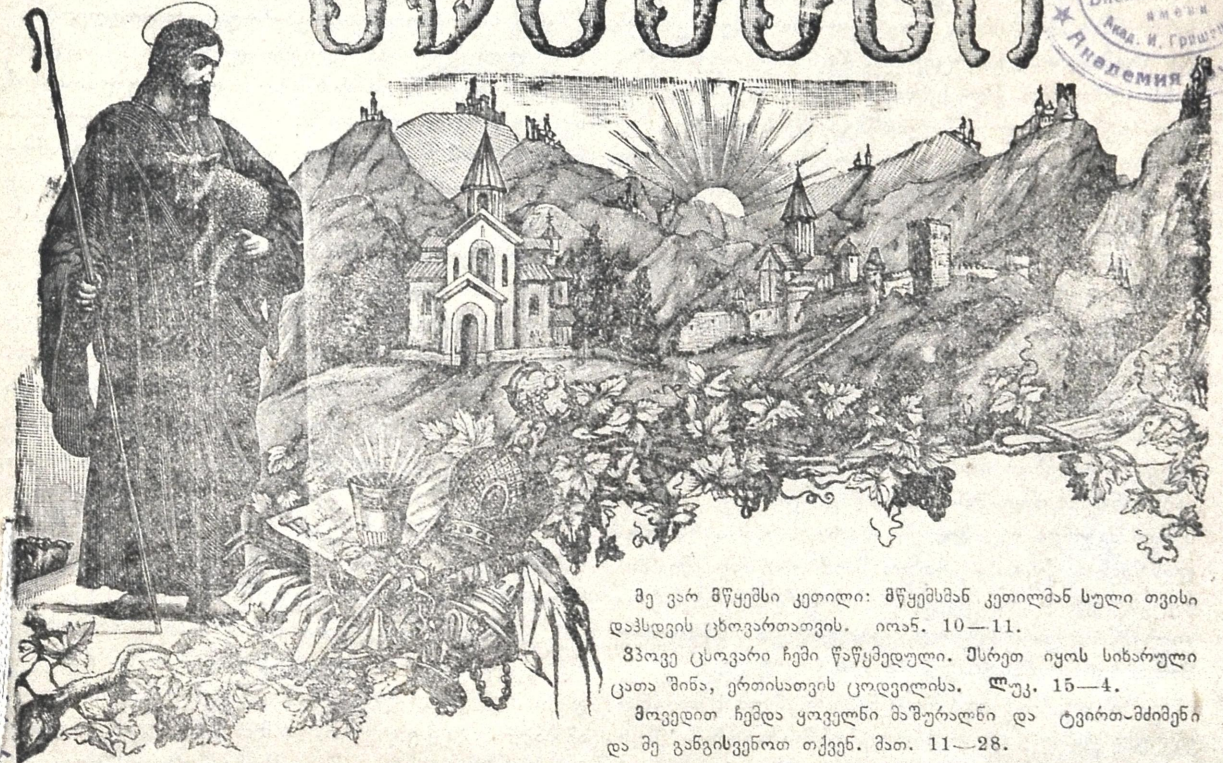 имени
Акад. И. Гриш
Академия
მე ვარ მწყემსი კეთილი: მწყემსმან კეთილმან სული თვისი
დაჰსდვის ცხოვართათვის. იოან. 10—11.
ვპოვე ცხოვარი ჩემი წაწყმედული. ესრეთ იყოს სიხარული
ცათა შინა, ერთისათვის ცოდვილისა. ლუკ. 15—4.
მოვედით ჩემდა ყოველნი მაშურალნი და ტვირთ-მძიმენი
და მე განგისვენოთ თქვენ. მათ. 11—28.